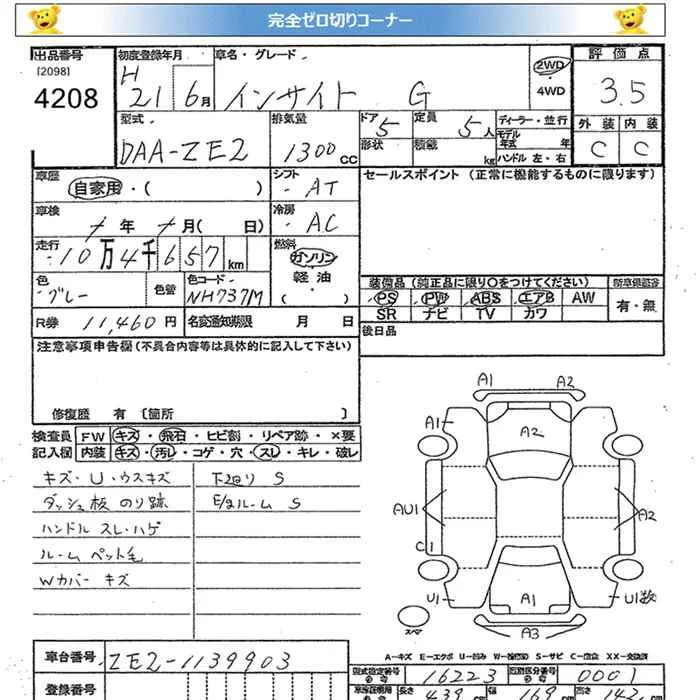 完全ゼロ切りコーナー
出品番号
[2098]
4208
初度登録年月
H
21 6月
車名・グレード
インサイト G
2WD
・
4WD
評価点
3.5
外装 内装
C C
型式
DAA-ZE2
排気量
1300 cc
ドア 5
形状
定員 5人
積載 kg
ディーラー・並行
モデル
年式 年
ハンドル 左・右
車歴
自家用・( )
シフト
AT
セールスポイント (正常に機能するものに限ります)
車検
年 月( 日)
冷房
AC
走行
10万4千657 km
燃料
ガソリン
軽油
( )
色
グレー
色替
色コード
NH737M
装備品 (純正品に限り○をつけてください)
PS PW ABS エアB AW
SR ナビ TV カワ
有・無
R券 11,460円
名変通知期限 月 日
後日品
注意事項申告欄(不具合内容等は具体的に記入して下さい)
修復歴 有 〔箇所 〕
検査員 FW キズ・飛石・ヒビ割・リペア跡・×要
記入欄 内装 キズ・汚レ・コゲ・穴・スレ・キレ・破レ
キズ・U・ウスキズ
下回り S
ダッシュ板 のり跡
E/gルーム S
ハンドル スレ・ハゲ
ルーム ペット毛
Wカバー キズ
A1 A2
A1
A2
AU1
A2
C1
U1
A1
U1
A3
スペア
A-キズ E-エクボ U-凹み S-サビ
車台番号 ZE2-1139903
型式指定番号 16223 類別区分番号 0001
登録番号
長さ 439 cm 幅 169 cm 高さ 142